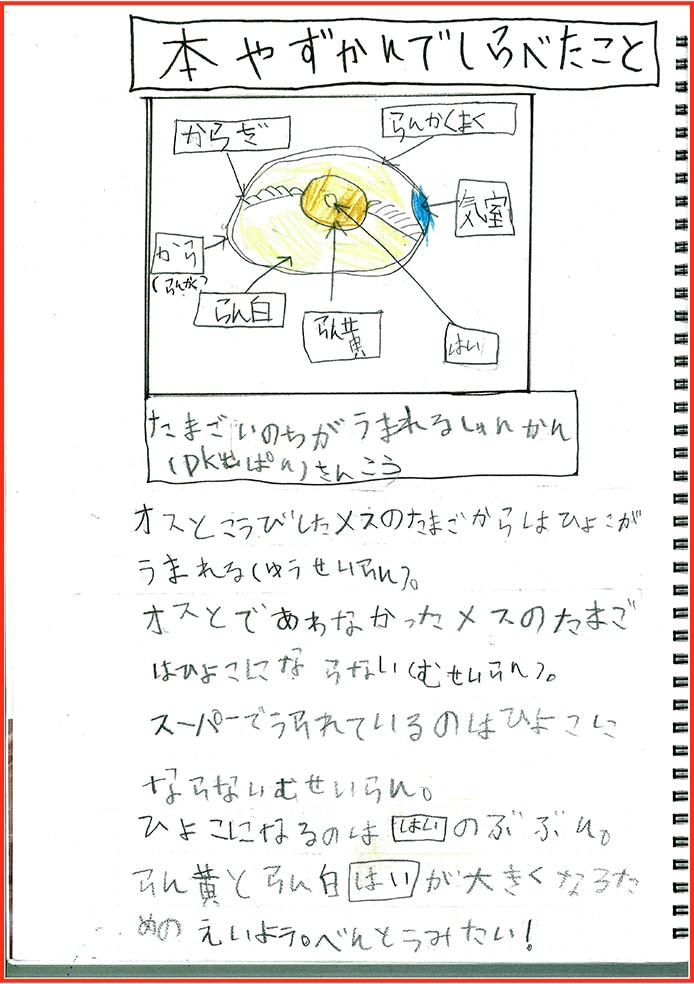 本やずかんでしらべたこと
からざ
らんかくまく
気室
から
(らんかく)
らん白
らん黄
はい
たまごいのちがうまれるしゅんかん
(DK出ぱん)さんこう
オスとこうびしたメスのたまごからはひよこが
うまれる(ゆうせいらん)。
オスとであわなかったメスのたまご
はひよこにならない(むせいらん)。
スーパーでうられているのはひよこに
ならないむせいらん。
ひよこになるのははいのぶぶん。
らん黄とらん白はいが大きくなるた
めのえいよう。べんとうみたい!